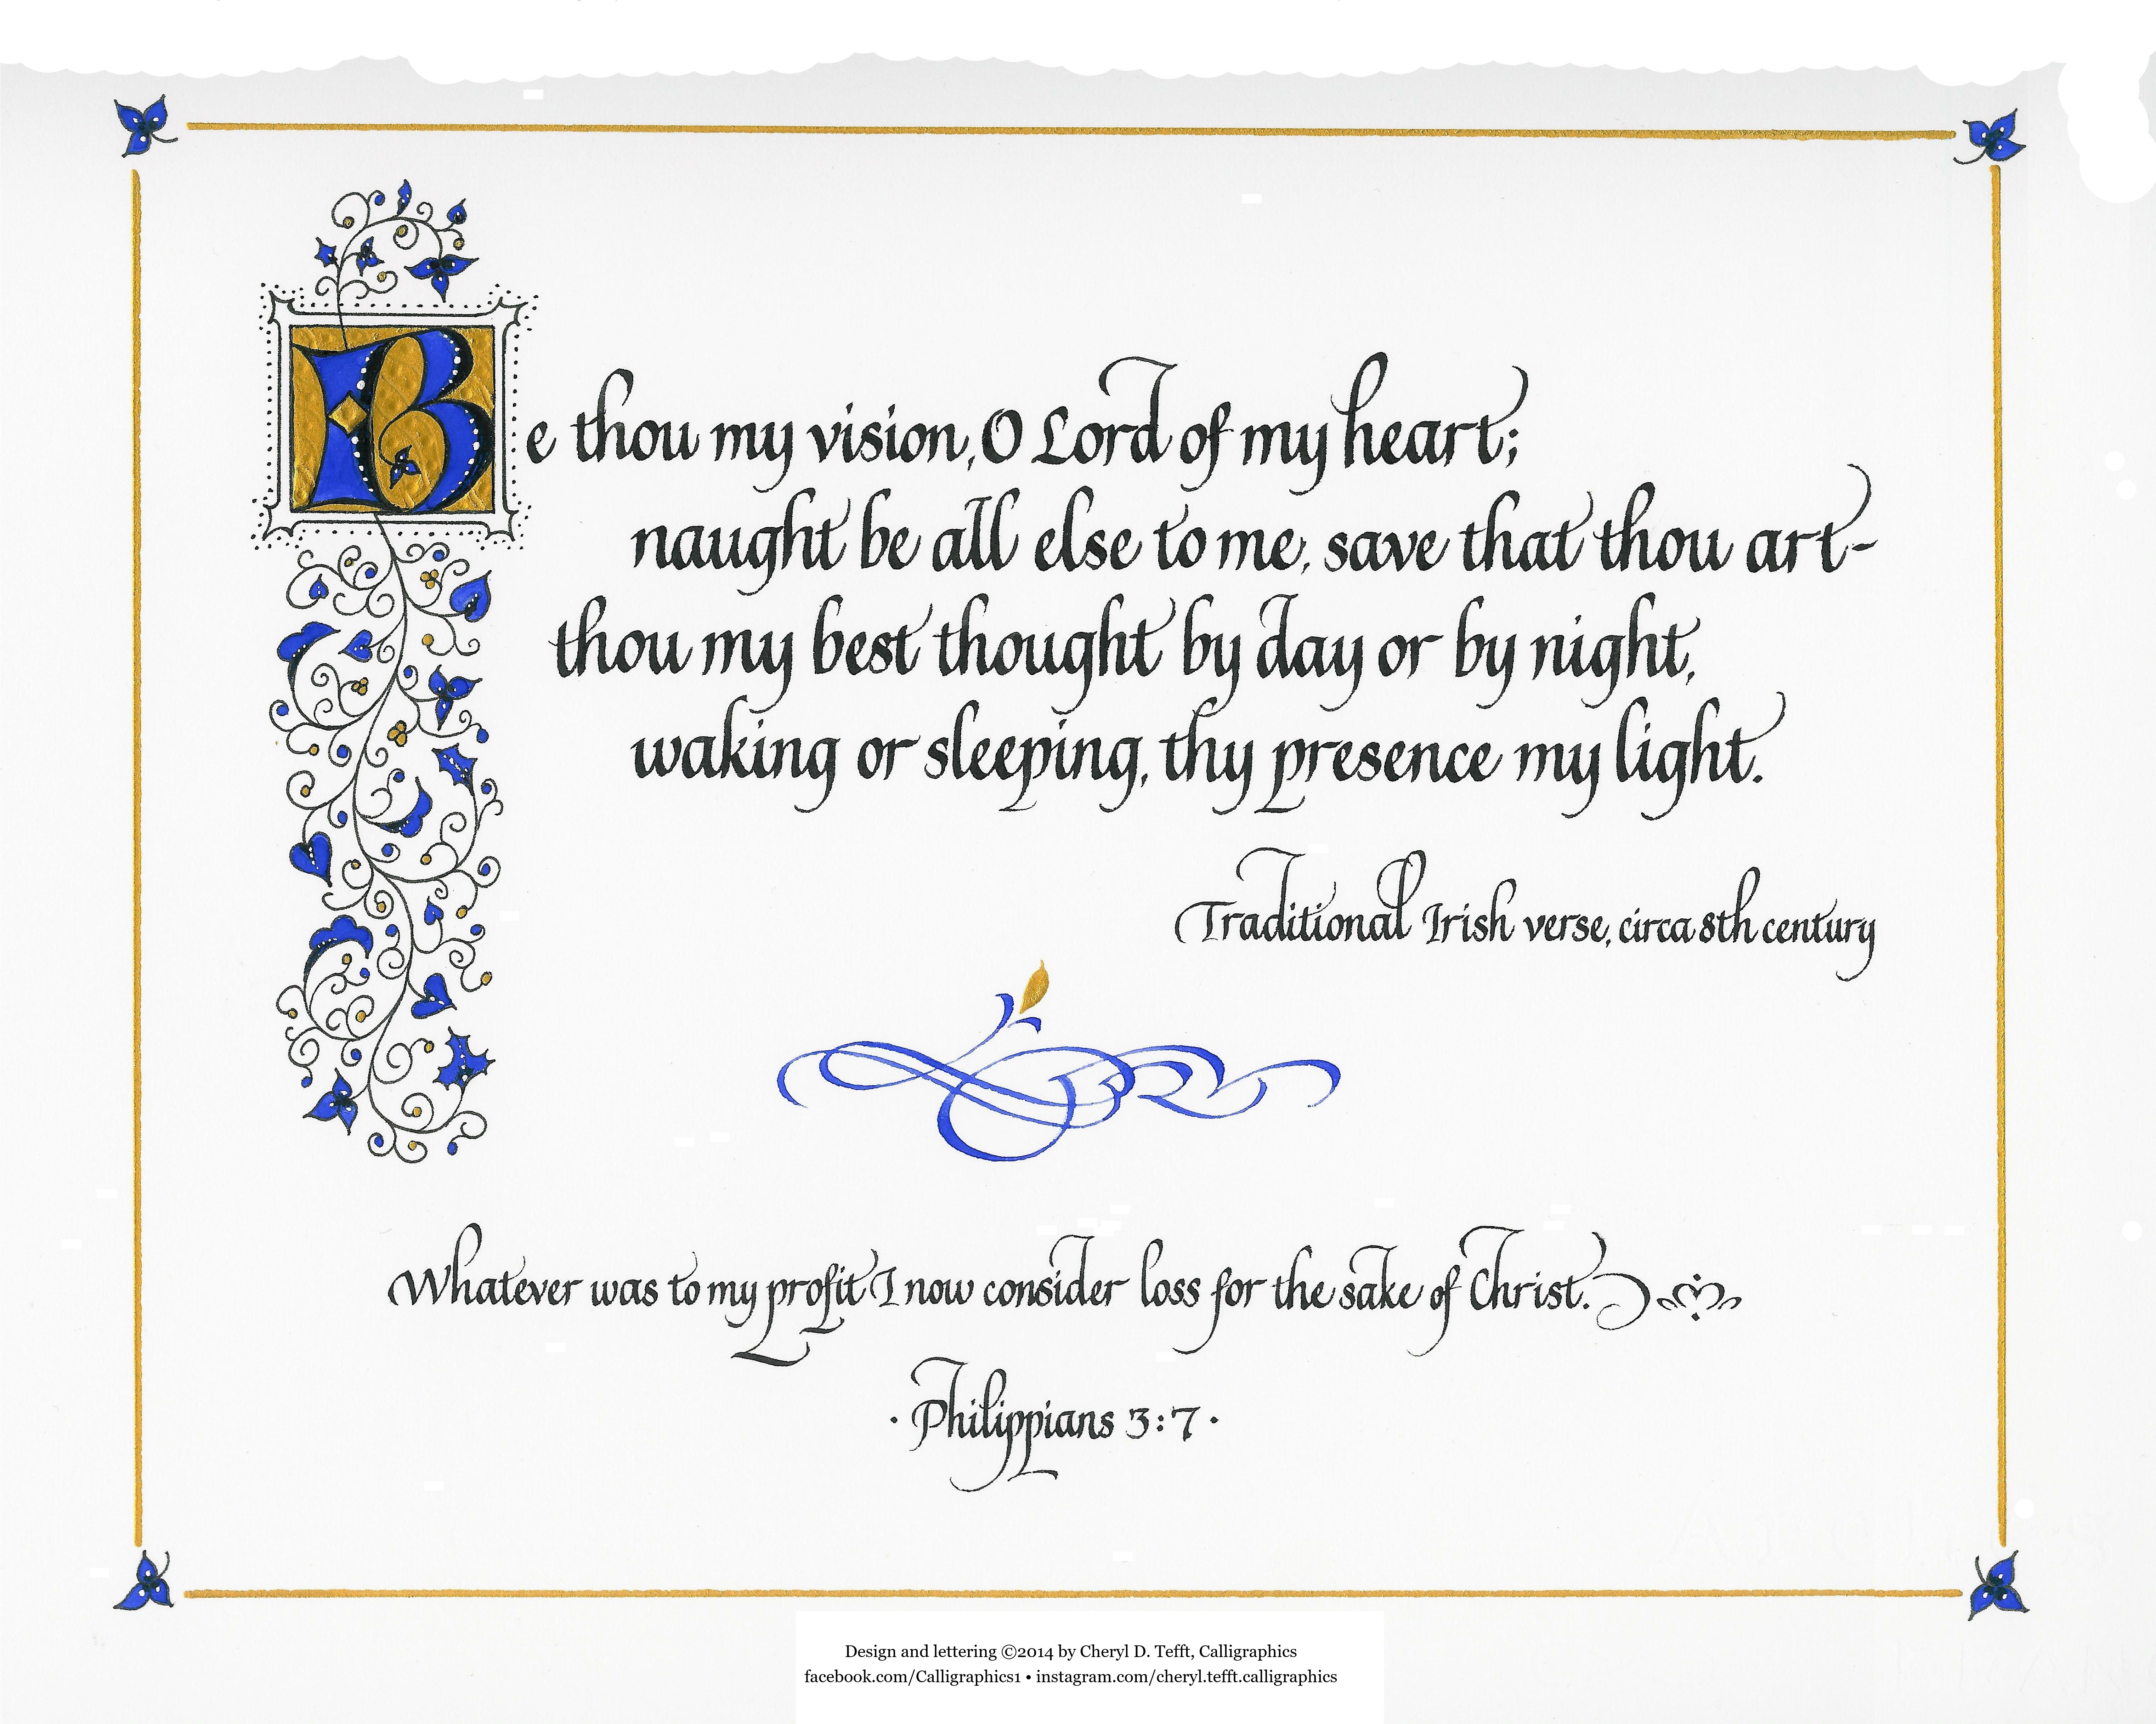 Be thou my vision, O Lord of my heart;
naught be all else to me, save that thou art-
thou my best thought by day or by night,
waking or sleeping, thy presence my light.
Traditional Irish verse, circa 8th century
Whatever was to my profit I now consider loss for the sake of Christ.
· Philippians 3:7 ·
Design and lettering ©2014 by Cheryl D. Tefft, Calligraphics
facebook.com/Calligraphics1 • instagram.com/cheryl.tefft.calligraphics